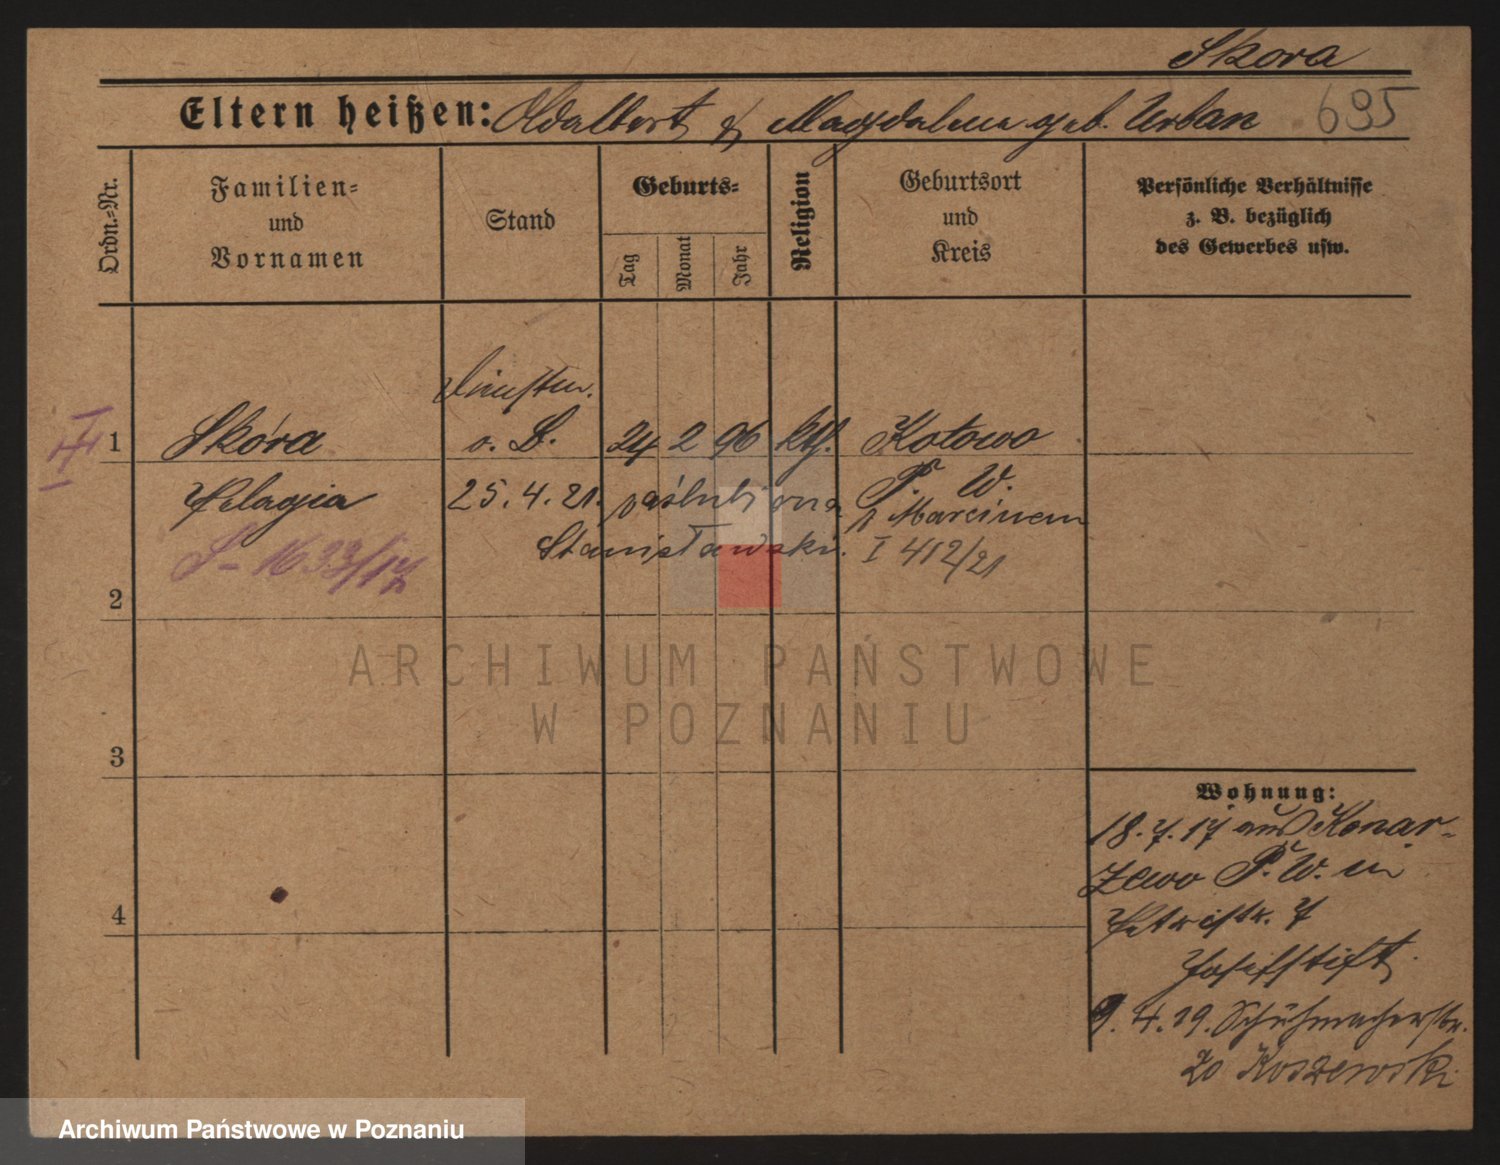 Skora
Eltern heißen: Adalbert & Magdalena geb. Urban 695
Ordn.-Nr.
Familien-
und
Vornamen
Stand
Geburts-
Tag
Monat
Jahr
Religion
Geburtsort
und
Kreis
Persönliche Verhältnisse
z. B. bezüglich
des Gewerbes usw.
1 Skóra
o. B. 24 2 96 kth. Kotowo
Pelagia
25.4.21. zaślubiona P. W.
z Marcinem
Stanisławski. I 412/21
S-1633/17
2
3
4
Wohnung:
18.7.17 aus Konar-
zewo P. W. in
Petristr. 7
Josefstift
9.4.19. Schuhmacherstr.
20 Koszewski
ARCHIWUM PAŃSTWOWE
W POZNANIU
Archiwum Państwowe w Poznaniu